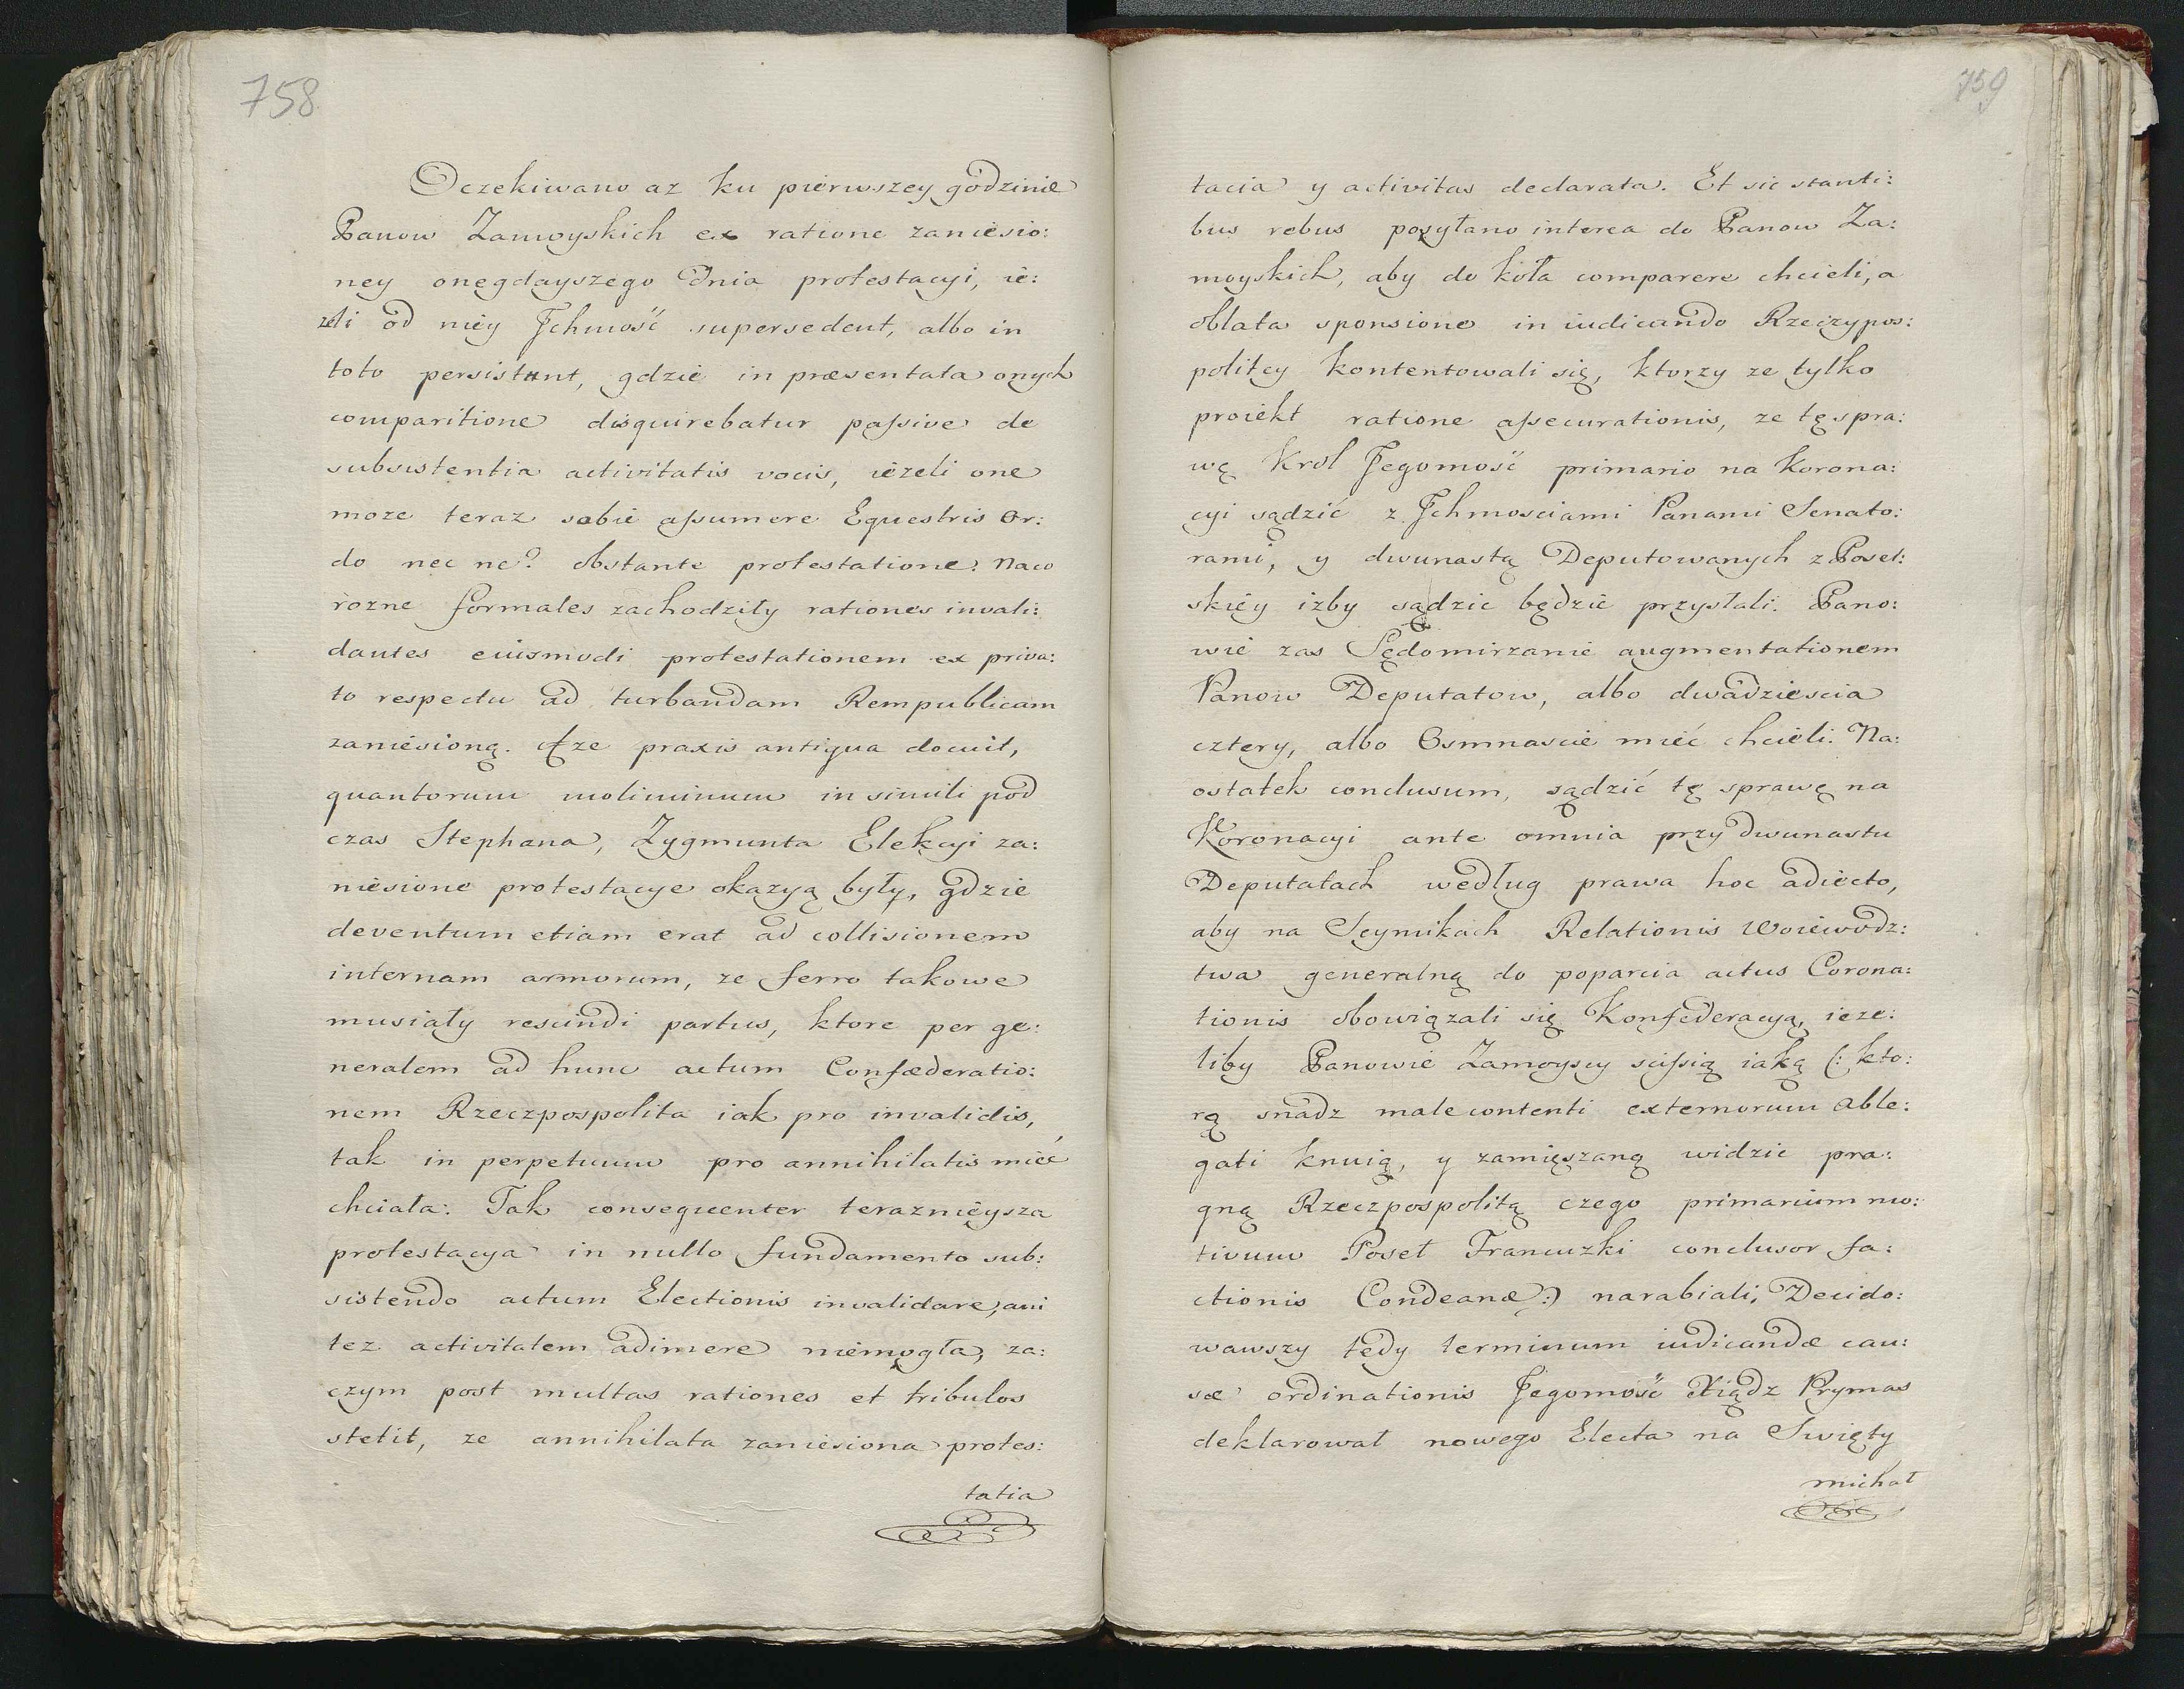 758
Oczekiwano az ku pierwszey godzinie
Panow Zamoyskich ex ratione zaniesio:
ney onegdayszego dnia protestacyi, ie:
zeli od niey Jchmość supersedent, albo in
toto persistunt, gdzie in præsentata onych
comparitione disquirebatur passive de
subsistentia activitatis vocis, iezeli one
moze teraz sobie assumere Equestris Or:
do nec ne? obstante protestatione. Naco
rozne formales zachodziły rationes invali:
dantes eiusmodi protestationem ex priva:
to respectu ad turbandam Rempublicam
zaniesioną. Aze praxis antiqua docuit,
quantorum moliminum in simili pod
czas Stephana, Zygmunta Elekcyi za:
niesione protestacye okazyą były, gdzie
deventum etiam erat ad collisionem
internam armorum, ze ferro takowe
musiały rescindi partus, ktore per ge:
neralem ad hunc actum Confæderatio:
nem Rzeczpospolita iak pro invalidis,
tak in perpetuum pro annihilatis mieć
chciała: Tak consequenter teraznieysza
protestacya in nullo fundamento sub:
sistendo actum Electionis invalidare, ani
tez activitatem adimere niemogła, za:
czym post multas rationes et tribulos
stetit, ze annihilata zaniesiona protes:
tatia
759
tacia y activitas declarata. Et sic stanti:
bus rebus posyłano interea do Panow Za:
moyskich, aby do koła comparere chcieli, a
oblata sponsione in iudicando Rzeczypos:
politey kontentowali się, ktorzy ze tylko
proiekt ratione assecurationis, ze tę spra:
wę Krol Jegomość primario na Korona:
cyi sądzić z Jchmosciami Panami Senato:
rami, y dwunastą Deputowanych z Posel:
skiey izby sądzic będzie przystali. Pano:
wie zas Sędomirzanie augmentationem
Panow Deputatow, albo dwadziescia
cztery, albo Osmnascie mieć chcieli. Na:
ostatek conclusum, sądzić tę sprawę na
Koronacyi ante omnia przy dwunastu
Deputatach według prawa hoc adiecto,
aby na Seymikach Relationis Woiewodz:
twa generalną do poparcia actus Corona:
tionis obowiązali się Konfederacyą, ieze:
liby Panowie Zamoyscy scissią iaką (: kto:
rą snadz malecontenti externorum able:
gati knuią, y zamięszaną widzic pra:
gną Rzeczpospolitą czego primarium mo:
tivum Poseł Francuzki conclusor fa:
ctionis Condeanæ:) narabiali. Decido:
wawszy tedy terminum iudicandæ cau:
sæ ordinationis Jegomość Xiądz Prymas
deklarował nowego Electa na Swięty
michał